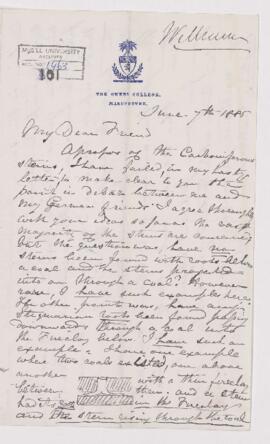 Williamson
McGILL UNIVERSITY
ARCHIVES
ACC. NO. 1463
101
THE OWENS COLLEGE,
MANCHESTER.
June 7th 1885
My Dear Friend
Apropos of the Carboniferous
stems, I have failed, in my hasty
letter, to make clear to you the
point in debate between me and
my German friends. I agree thoroughly
with your ideas so far as the vast
majority of the stems are concerned
but the question was, have any
stems been found with roots below
a coal and the stems projected
into or through a coal? However
rare, I have such examples here.
The other point was, have
Stigmarian roots been found passing
downwards through a coal into
the Fireclay below. I have such an
example. I have one example
where two coals existed, one above
another with a thin fireclay
between and a stem
had its in the fireclay
and the stem rising through the coal